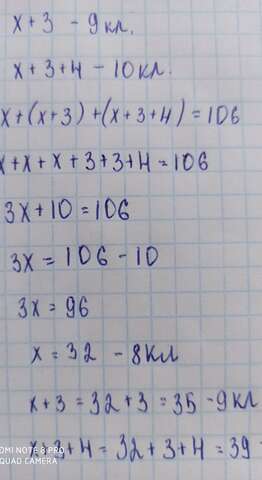 x + 3 - 9 кл.
x + 3 + 4 - 10 кл.
x + (x + 3) + (x + 3 + 4) = 106
x + x + x + 3 + 3 + 4 = 106
3x + 10 = 106
3x = 106 - 10
3x = 96
x = 32 - 8 кл
x + 3 = 32 + 3 = 35 - 9 кл
x + 3 + 4 = 32 + 3 + 4 = 39 -
OMI NOTE 8 PRO
QUAD CAMERA